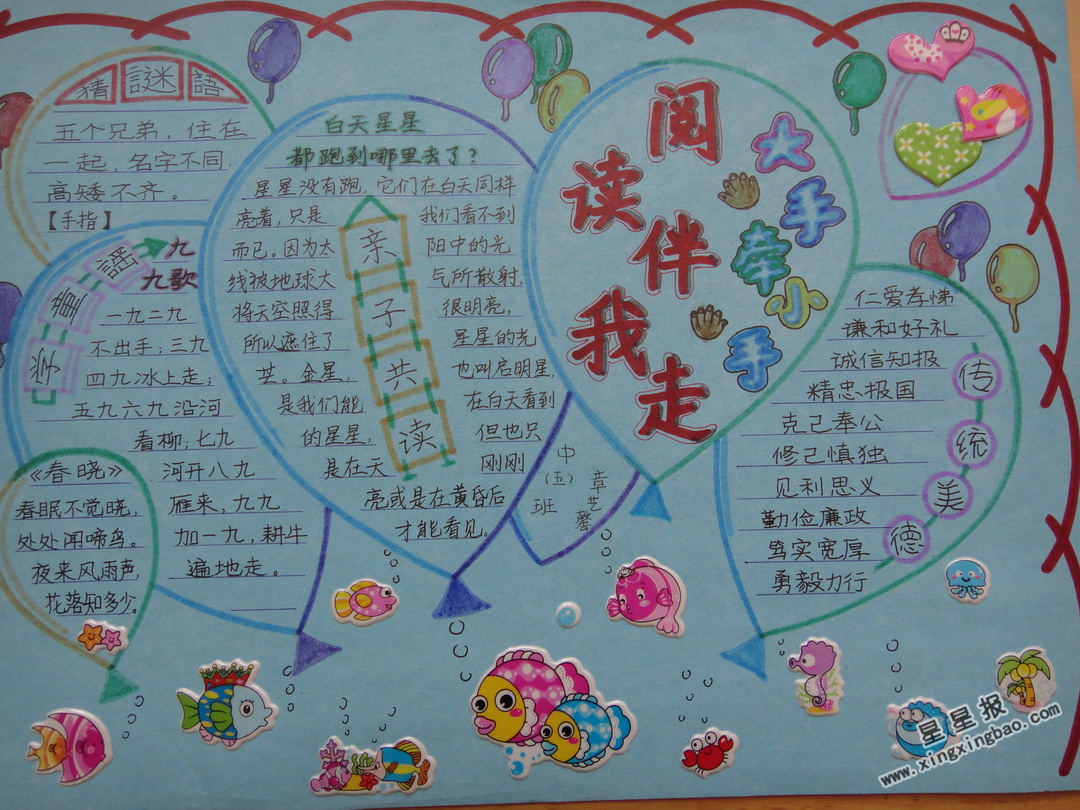 猜謎語
五个兄弟，住在
一起，名字不同.
高矮不齐。
【手指】
学童謡
九
九歌
一九二九
不出手；三九
四九冰上走；
五九六九沿河
看柳；七九
河开八九
雁来，九九
加一九，耕牛
遍地走。
《春晓》
春眠不觉晓，
处处闻啼鸟。
夜来风雨声，
花落知多少。
白天星星
都跑到哪里去了？
亲子共读
星星没有跑，它们在白天同样
亮着，只是 我们看不到
而已。因为太 阳中的光
线被地球大 气所散射，
将天空照得 很明亮，
所以遮住了 星星的光
芒。金星， 也叫启明星，
是我们能 在白天看到
的星星， 但也只
是在天 刚刚
亮或是在黄昏后
才能看见。
阅读伴我走
大手牵小手
中(五)班
章艺馨
传统美德
仁爱孝悌
谦和好礼
诚信知报
精忠报国
克己奉公
修己慎独
见利思义
勤俭廉政
笃实宽厚
勇毅力行
星星报
www.xingxingbao.com